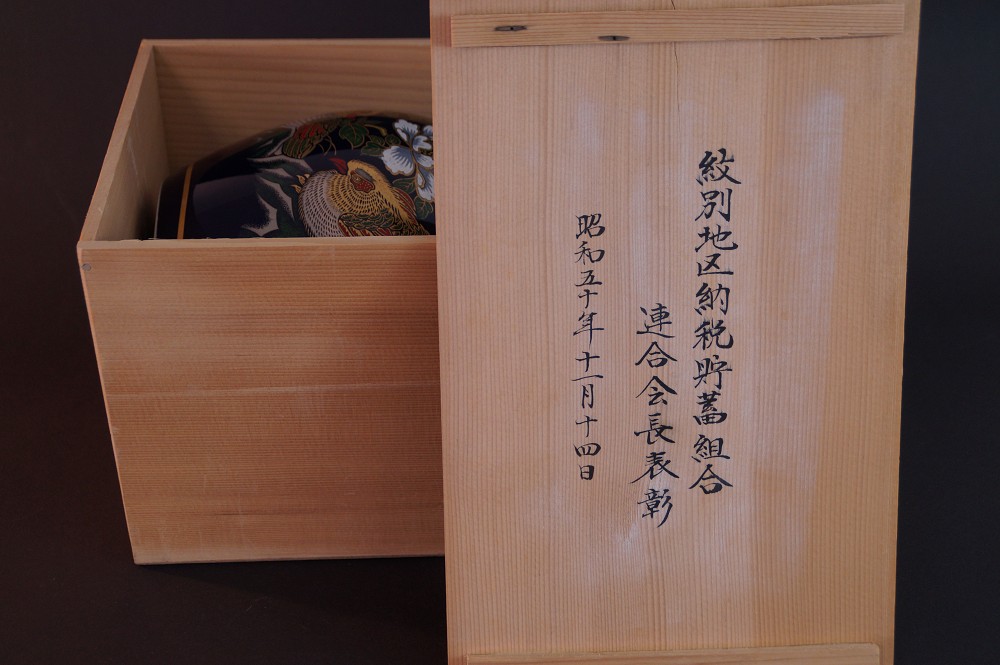 紋別地区納税貯蓄組合
連合会長表彰
昭和五十年十一月十四日